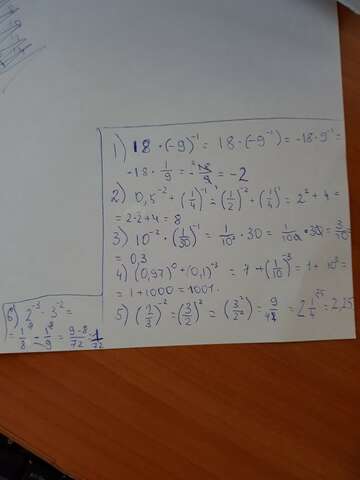 1) 18 · (-9)^-1 = 18 · (-9^-1) = -18 · 9^-1 =
-18 · 1/9 = - 18/9 = -2
2) 0,5^-2 + (1/4)^-1 = (1/2)^-2 + (1/4)^-1 = 2^2 + 4 =
= 2·2+4 = 8
3) 10^-2 · (1/30)^-1 = 1/10^2 · 30 = 1/100 · 30 = 3/10 =
= 0,3
4) (0,97)^0 + (0,1)^-3 = 1 + (1/10)^-3 = 1 + 10^3 =
= 1 + 1000 = 1001.
5) (2/3)^-2 = (3/2)^2 = (3^2/2^2) = 9/4 = 2 1/4 = 2,25
6) 2^-3 - 3^-2 =
= 1/8 - 1/9 = 9-8/72 = 1/72